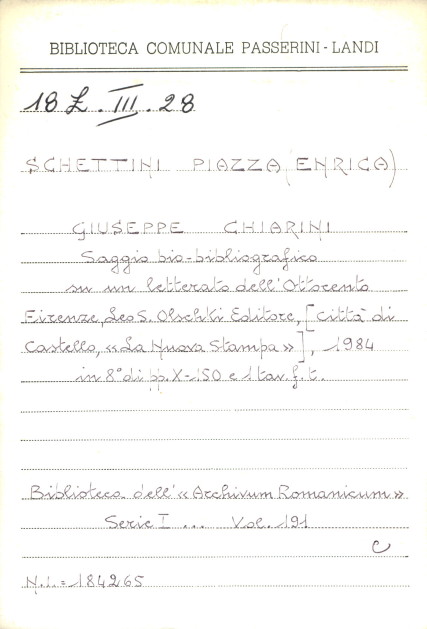 BIBLIOTECA COMUNALE PASSERINI-LANDI
18 L. III. 28
SCHETTINI PIAZZA (ENRICA)
GIUSEPPE CHIARINI
Saggio bio-bibliografico
su un letterato dell'Ottocento
Firenze, Leo S. Olschki Editore, [Città di
Castello, «La Nuova Stampa»], 1984
in 8° di pp. X-150 e 1 tav. f. t.
Biblioteca dell'«Archivum Romanicum»
Serie I ... Vol. 191
C
N.i. = 184265